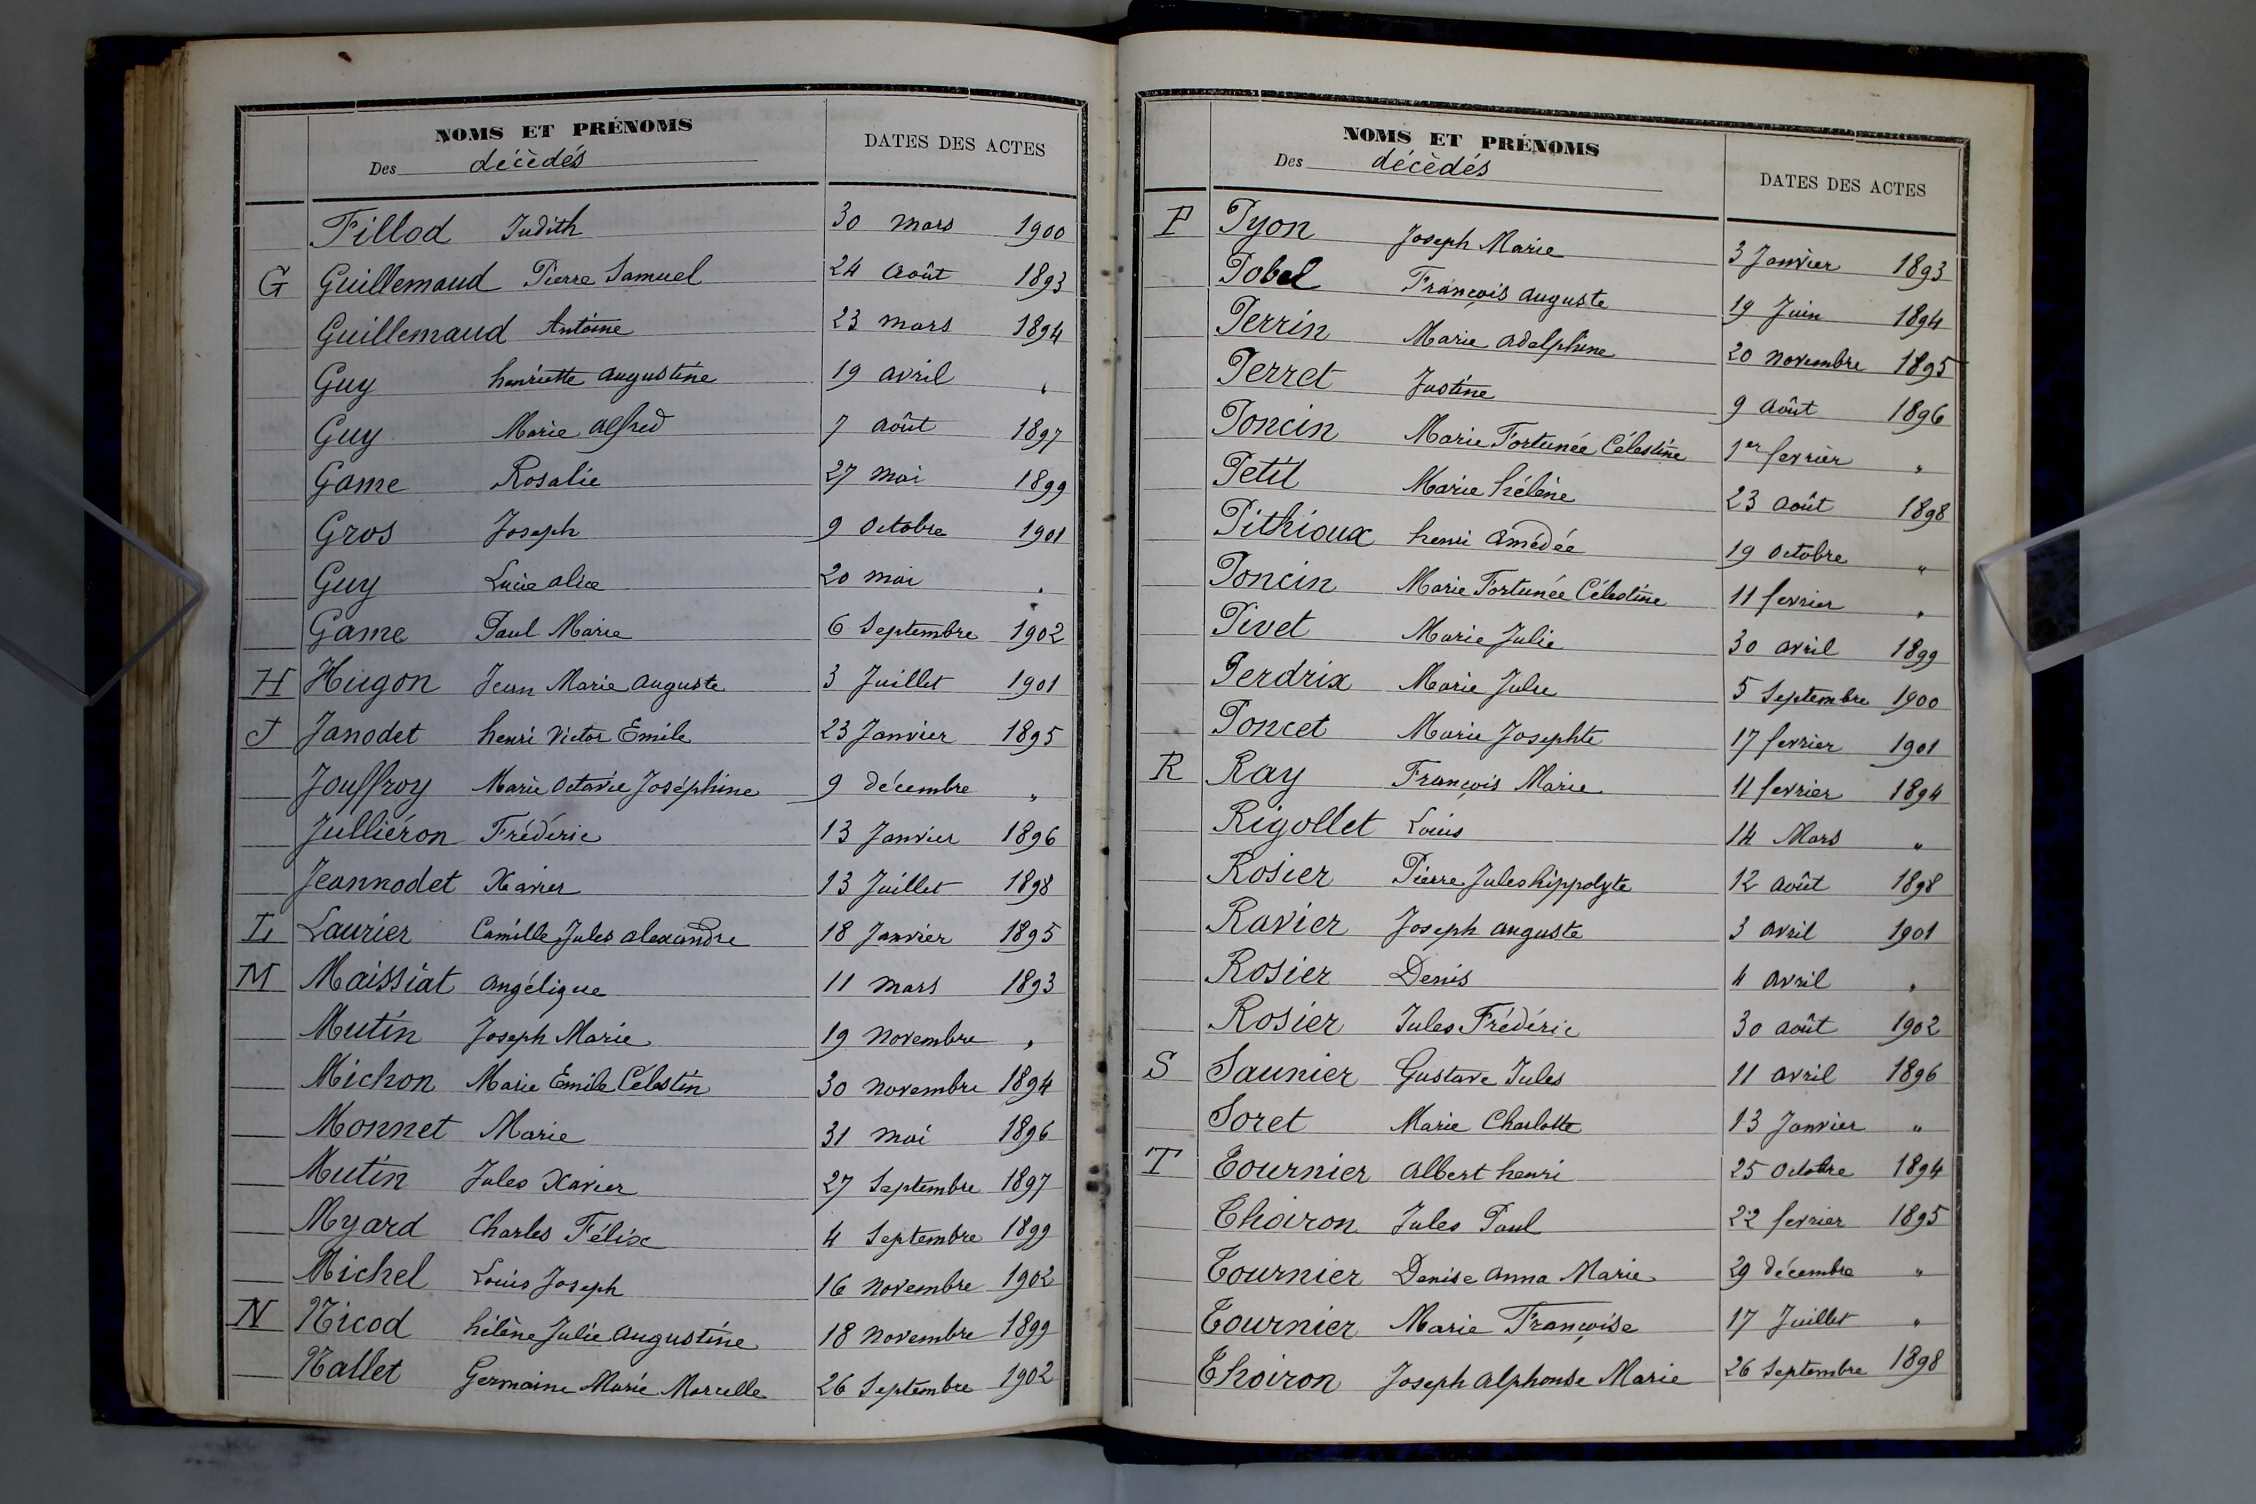 NOMS ET PRÉNOMS
Des décèdés
DATES DES ACTES
Fillod Judith 30 mars 1900
G Guillemaud Pierre Samuel 24 août 1893
Guillemaud Antoine 23 mars 1894
Guy henriette augustine 19 avril "
Guy Marie alfred 7 août 1897
Game Rosalie 27 mai 1899
Gros Joseph 9 octobre 1901
Guy Lucie alice 20 mai "
Game Paul Marie 6 Septembre 1902
H Hugon Jean Marie auguste 3 Juillet 1901
J Janodet henri Victor Emile 23 Janvier 1895
Jouffroy Marie octavie Joséphine 9 décembre "
Julliéron Frédéric 13 Janvier 1896
Jeannodet Xavier 13 Juillet 1898
L Laurier Camille Jules alexandre 18 Janvier 1895
M Maissiat angélique 11 mars 1893
Mutin Joseph Marie 19 novembre "
Michon Marie Emile Célestin 30 novembre 1894
Monnet Marie 31 mai 1896
Mutin Jules Xavier 27 Septembre 1897
Myard Charles Félix 4 Septembre 1899
Michel Louis Joseph 16 novembre 1902
N Nicod hélène Julie augustine 18 novembre 1899
Nallet Germaine Marie Marcelle 26 Septembre 1902
NOMS ET PRÉNOMS
Des décèdés
DATES DES ACTES
P Pyon Joseph Marie 3 Janvier 1893
Pobel François auguste 19 Juin 1894
Perrin Marie adelphine 20 novembre 1895
Perret Justine 9 août 1896
Poncin Marie Fortunée Célestine 1er fevrier "
Petit Marie hélène 23 août 1898
Pithioux henri amédée 19 octobre "
Poncin Marie Fortunée Célestine 11 fevrier "
Pivet Marie Julie 30 avril 1899
Perdrix Marie Julie 5 Septembre 1900
Poncet Marie Josephte 17 fevrier 1901
R Ray François Marie 11 fevrier 1894
Rigollet Louis 14 Mars "
Rosier Pierre Jules hippolyte 12 août 1898
Ravier Joseph auguste 3 avril 1901
Rosier Denis 4 avril "
Rosier Jules Frédéric 30 août 1902
S Saunier Gustave Jules 11 avril 1896
Soret Marie Charlotte 13 Janvier "
T Tournier albert henri 25 octobre 1894
Thoiron Jules Paul 22 fevrier 1895
Tournier Denise anna Marie 29 décembre "
Tournier Marie Françoise 17 Juillet "
Thoiron Joseph alphonse Marie 26 Septembre 1898